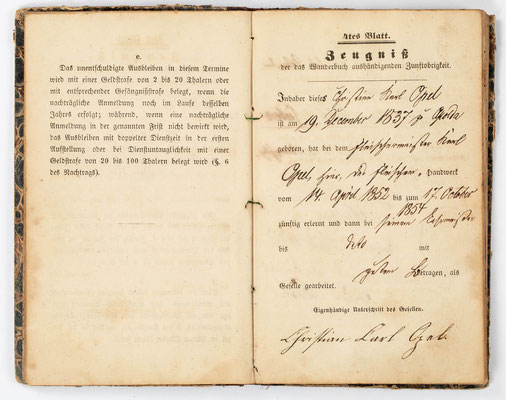 e.
Das unentschuldigte Ausbleiben in diesem Termine
wird mit einer Geldstrafe von 2 bis 20 Thalern oder
mit entsprechender Gefängnißstrafe belegt, wenn die
nachträgliche Anmeldung noch im Laufe desselben
Jahres erfolgt; während, wenn eine nachträgliche
Anmeldung in der genannten Frist nicht bewirkt wird,
das Ausbleiben mit doppelter Dienstzeit in der ersten
Aufstellung oder bei Dienstuntauglichkeit mit einer
Geldstrafe von 20 bis 100 Thalern belegt wird (§. 6
des Nachtrags).
4tes Blatt.
Zeugniß
der das Wanderbuch aushändigenden Zunftobrigkeit.
Inhaber dieses Christian Karl Opel
ist am 19. December 1837 zu Roda
geboren, hat bei dem Fleischermeister Karl
Opel, hier, das Fleischer, Handwerk
vom 14. April 1852 bis zum 17. October
1854
zünftig erlernt und dann bei seinem Lehrmeister
bis dato mit
gutem Betragen, als
Geselle gearbeitet.
Eigenhändige Unterschrift des Gesellen.
Christian Carl Opel.